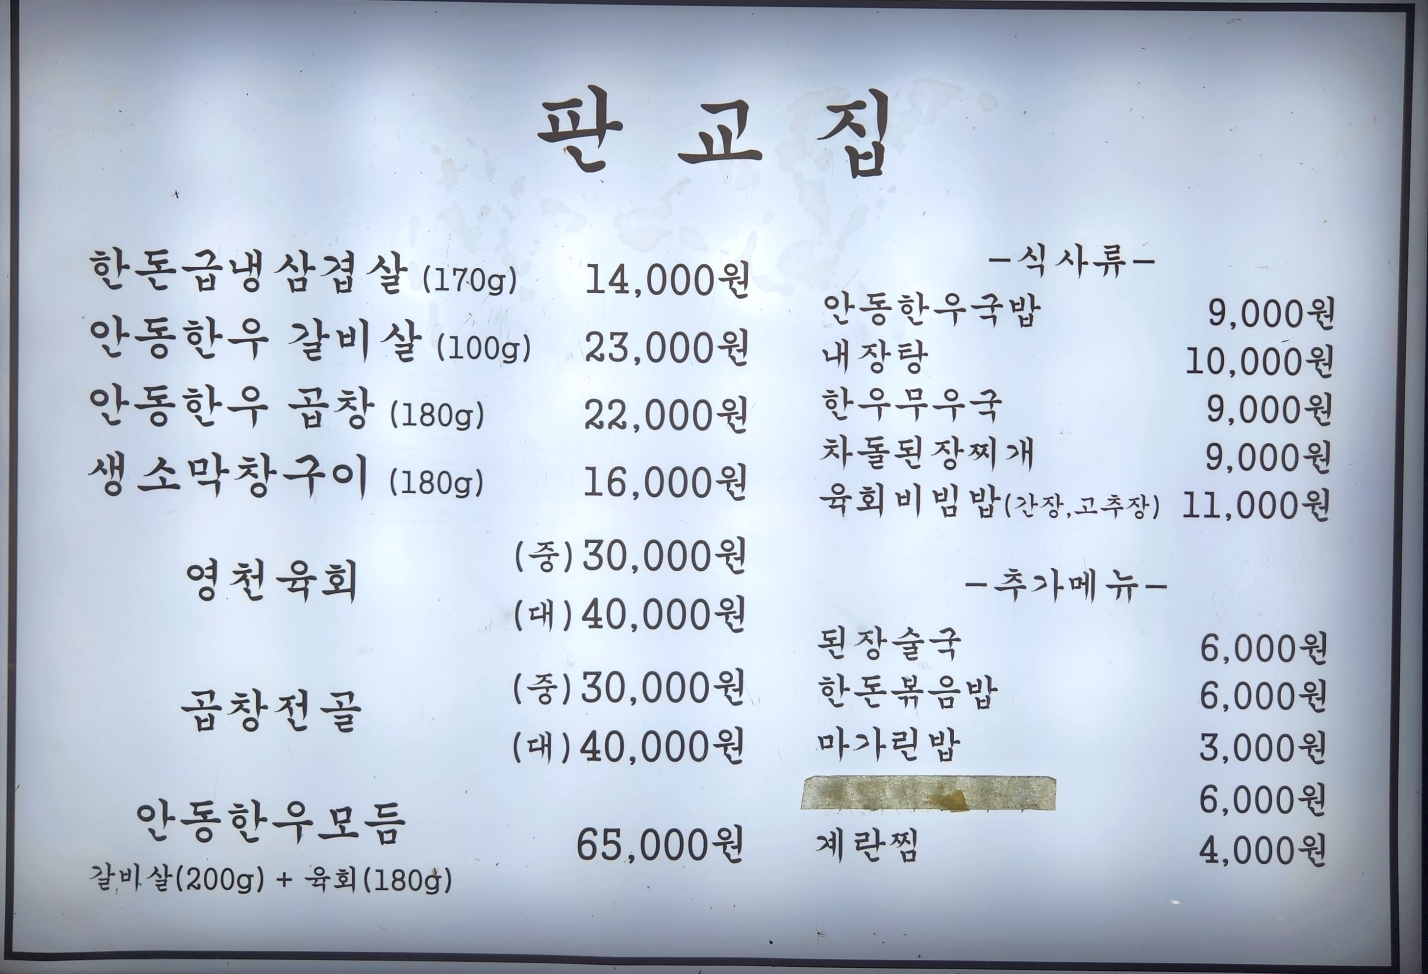 판교집
한돈급냉삼겹살 (170g) 14,000원
안동한우 갈비살 (100g) 23,000원
안동한우 곱창 (180g) 22,000원
생소막창구이 (180g) 16,000원
영천육회 (중) 30,000원
(대) 40,000원
곱창전골 (중) 30,000원
(대) 40,000원
안동한우모듬 65,000원
갈비살(200g) + 육회(180g)
-식사류-
안동한우국밥 9,000원
내장탕 10,000원
한우무우국 9,000원
차돌된장찌개 9,000원
육회비빔밥(간장,고추장) 11,000원
-추가메뉴-
된장술국 6,000원
한돈볶음밥 6,000원
마가린밥 3,000원
6,000원
계란찜 4,000원